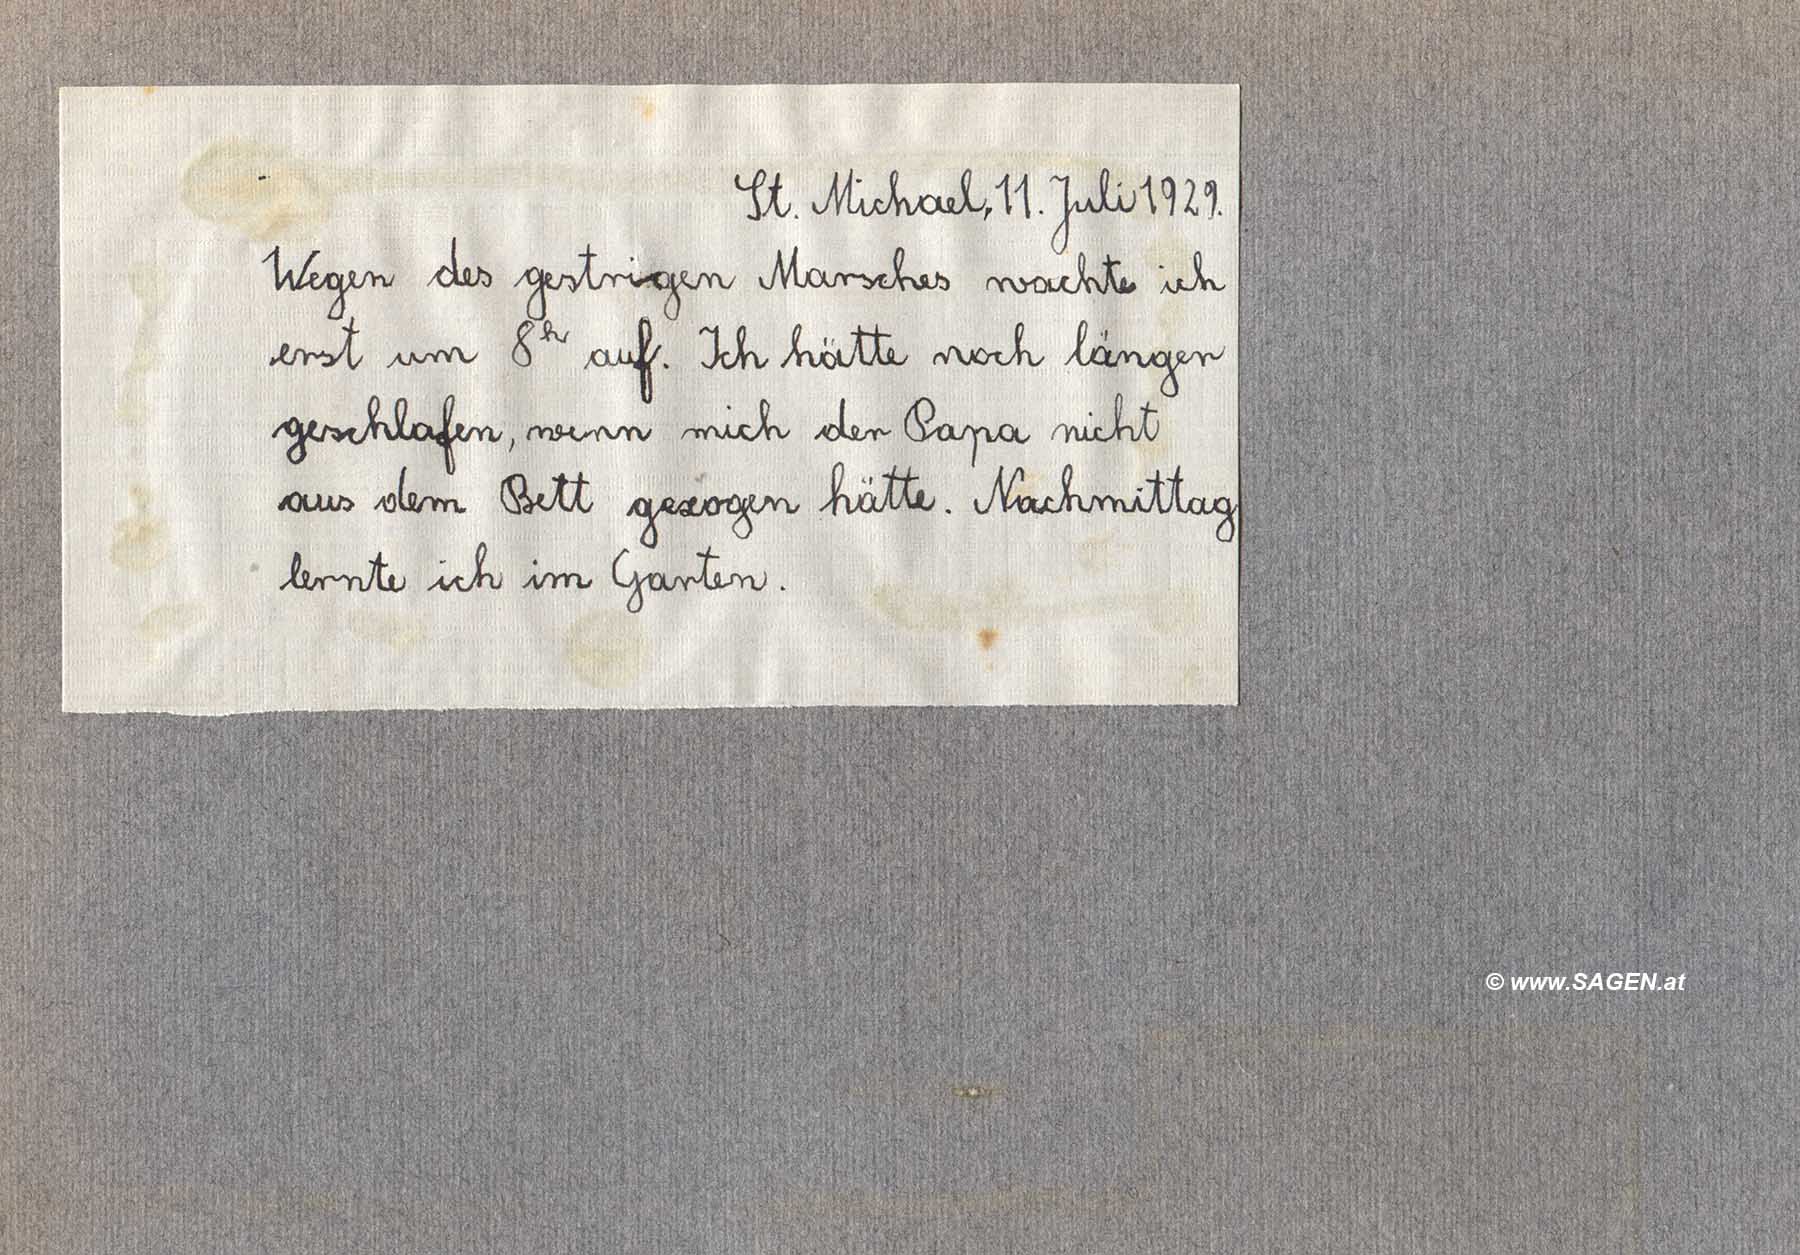 St. Michael, 11. Juli 1929.
Wegen des gestrigen Marsches wachte ich
erst um 8h auf. Ich hätte noch länger
geschlafen, wenn mich der Papa nicht
aus dem Bett gezogen hätte. Nachmittag
lernte ich im Garten.
© www.SAGEN.at